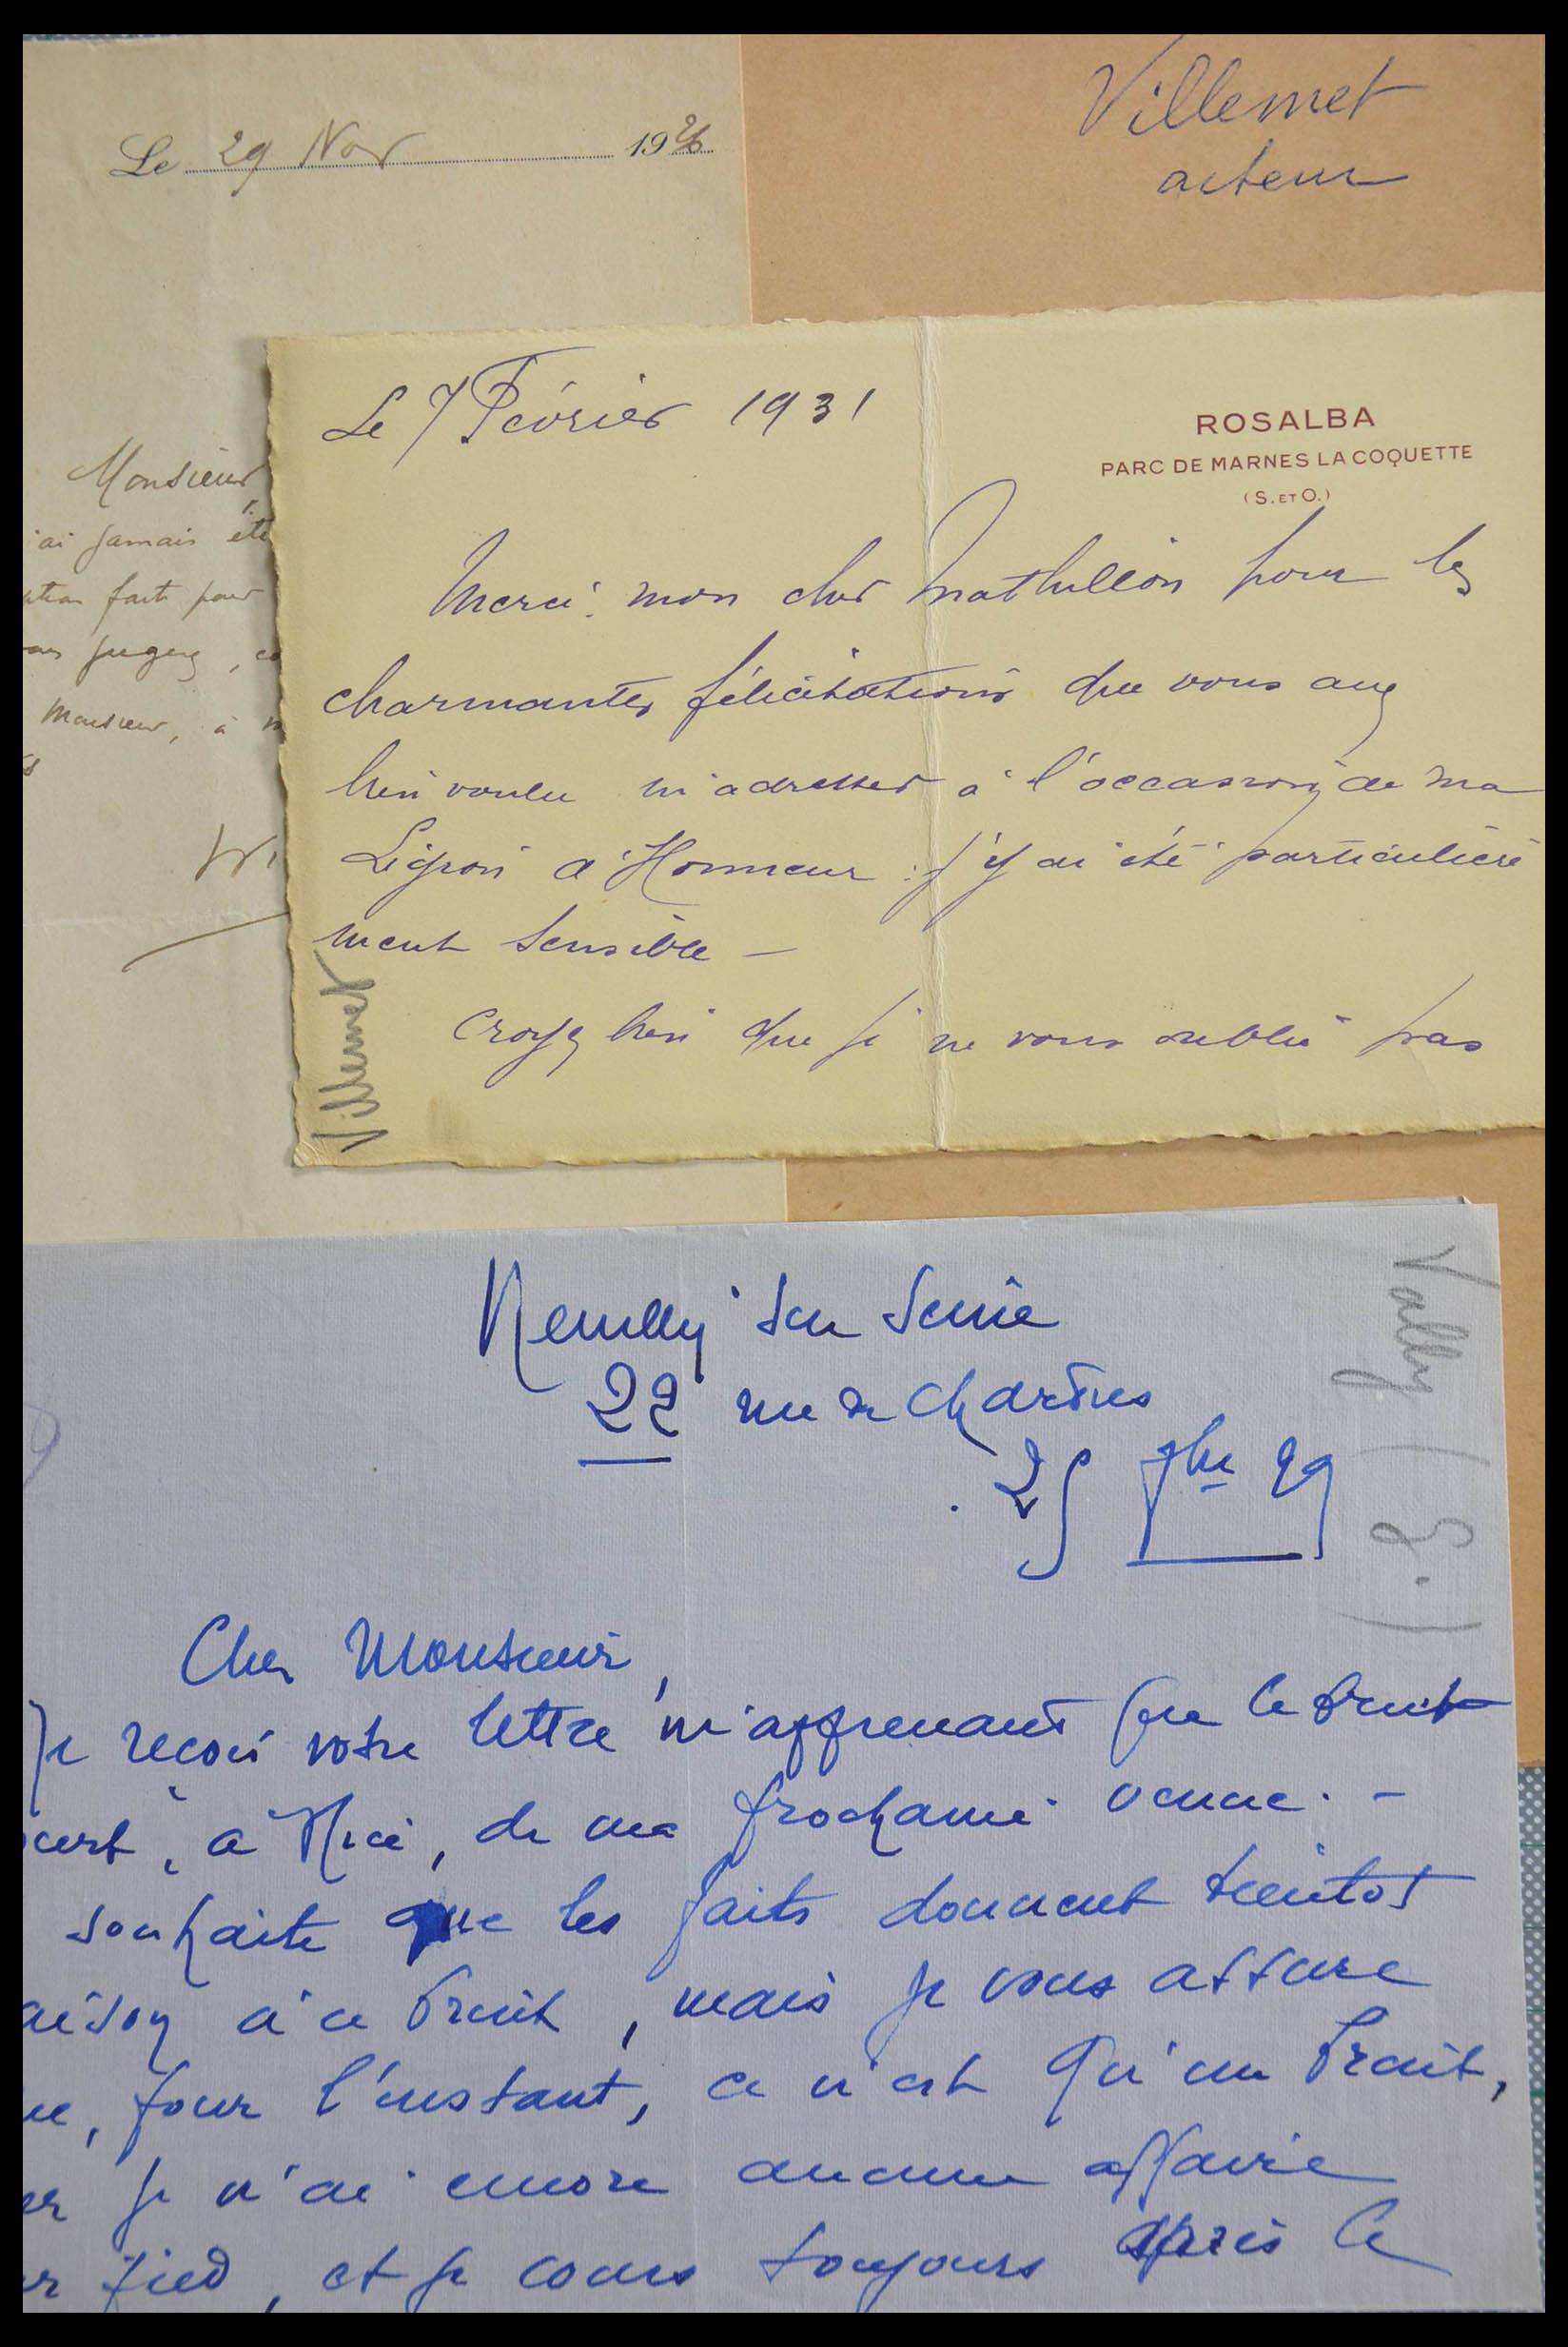 Le 29 Nov 1926
Monsieur,
'ai jamais été
faite pour
jugerez, co
Monsieur, à
Villemet
acteur
Le 7 Février 1931
ROSALBA
PARC DE MARNES LA COQUETTE
(S. ET O.)
Merci, mon cher Mathillon pour les
charmantes félicitations que vous avez
bien voulu m'adresser à l'occasion de ma
Légion d'Honneur : j'y ai été particulière
ment sensible –
Croyez bien que je ne vous oublie pas
Villemet
Neuilly sur Seine
22 rue de Chartres
25 9bre 29
Vally (G.)
Cher Monsieur,
Je reçois votre lettre m'apprenant que le bruit
court, à Nice, de ma prochaine venue. –
souhaite que les faits donnent bientôt
aison à ce bruit, mais je vous assure
ue, pour l'instant, ce n'est qu'un bruit,
ar je n'ai encore aucune affaire
ur pied, et je cours toujours après le